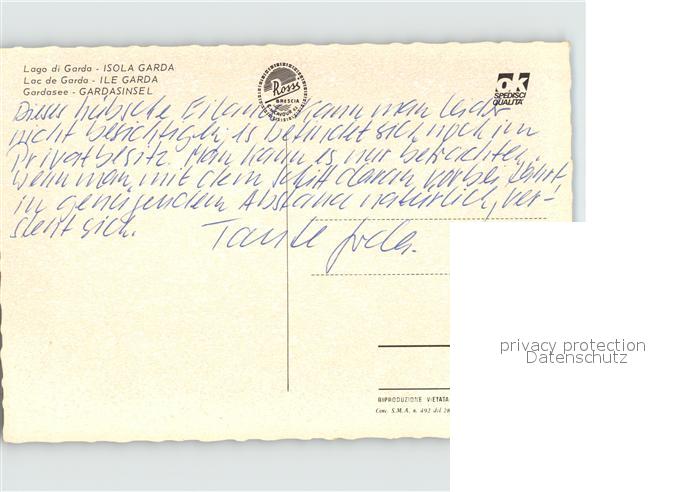 Lago di Garda - ISOLA GARDA
Lac de Garda - ILE GARDA
Gardasee - GARDASINSEL
Ross
BRESCIA
OK
SPEDISCI
QUALITÀ
Dieses hübsche Eiland kann man leider
nicht besichtigen, es befindet sich noch im
Privatbesitz. Man kann es nur betrachten,
wenn man mit dem Schiff daran vorbei fährt,
in genügendem Abstand natürlich, ver-
steht sich.
Tante
RIPRODUZIONE VIETATA
Conc. S.M.A. n. 492 del 28
privacy protection
Datenschutz